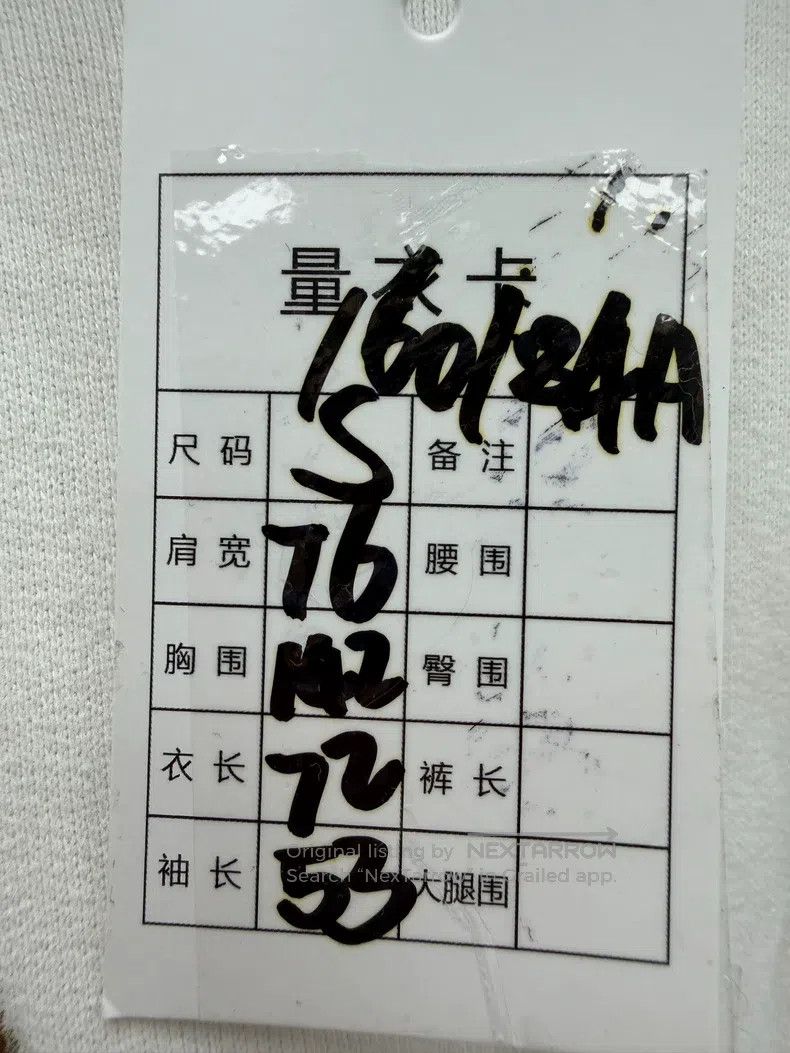 量衣卡
160/84A
尺码 S 备注
肩宽 76 腰围
胸围 142 臀围
衣长 72 裤长
袖长 53 大腿围
Original listing by NEXTARROW
Search "NexTarrow" in Grailed app.